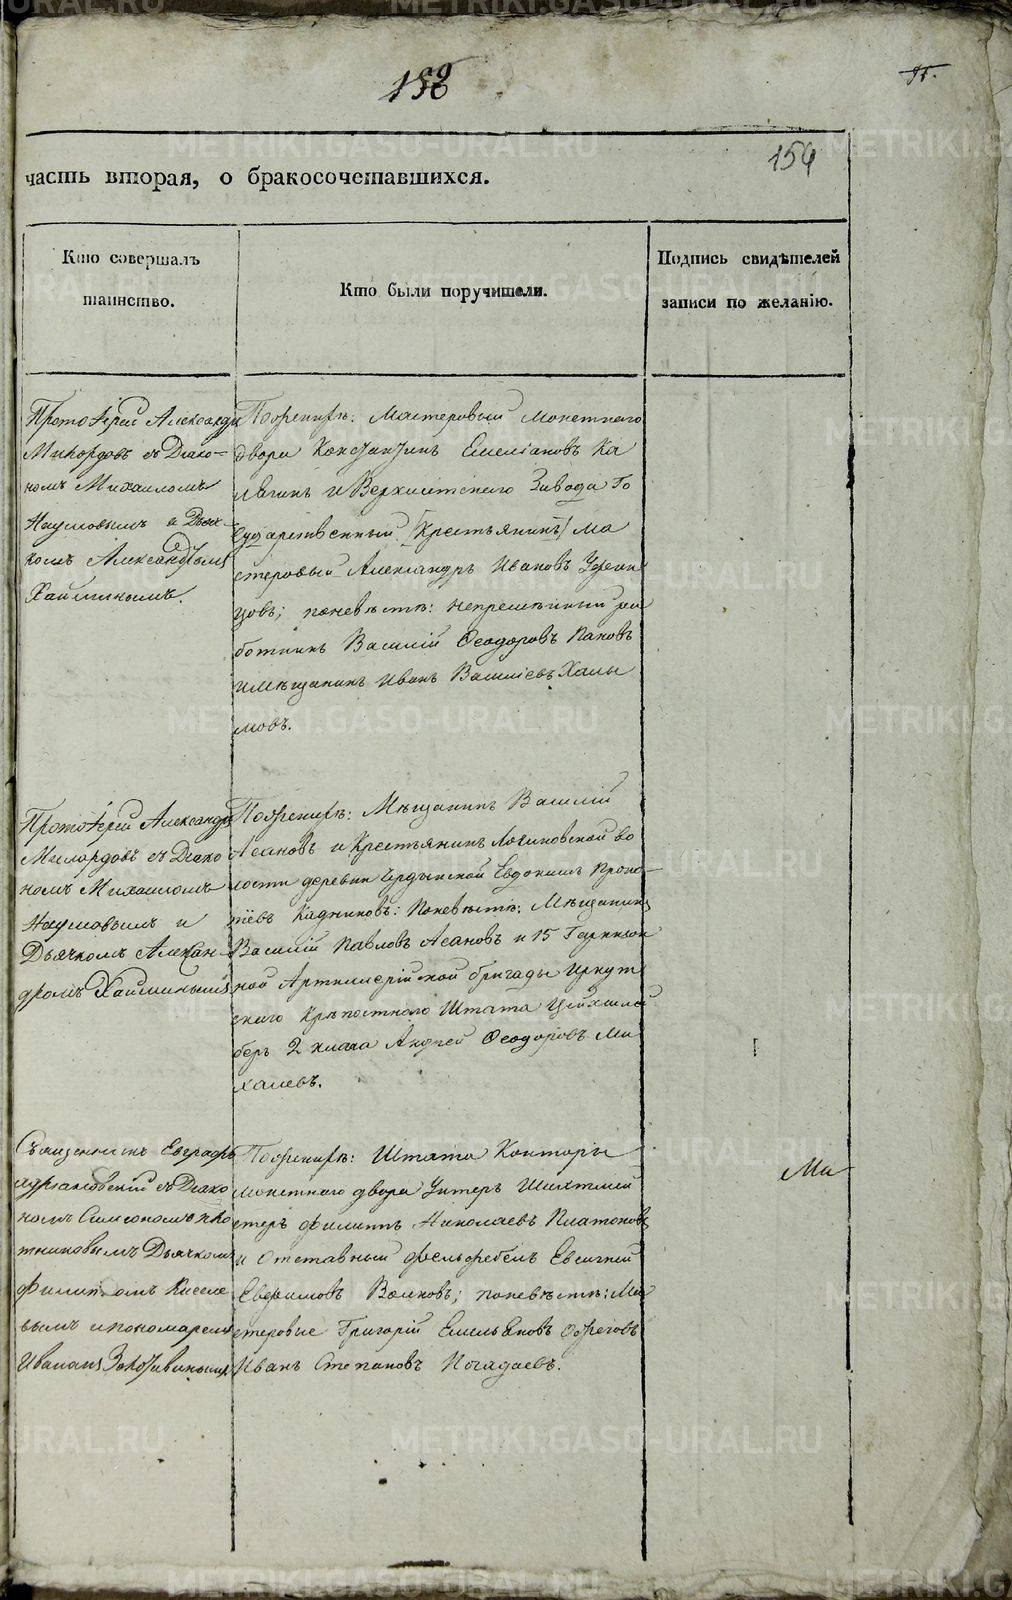 158
154
часть вторая, о бракосочетавшихся.
Кто совершалъ
таинство.
Кто были поручители.
Подпись свидѣтелей
записи по желанію.
Протоіерей Александръ
съ Діако-
номъ Михаиломъ
Наумовымъ и Дьяч-
комъ Александромъ
Хайминымъ.
Мастеровый Монетнаго
двора Константинъ Емельяновъ Ка
и Верхисетскаго Завода Го
сударственный [Крестьянинъ] ма
стеровый Александръ Ивановъ
цовъ; поневѣстѣ: Непремѣнный ра
ботникъ Василій Ѳеодоровъ Пановъ
и мѣщанинъ Иванъ Василіевъ Халы
мовъ.
Протоіерей Александръ
Милордовъ съ Діако
номъ Михаиломъ
Наумовымъ и
Дьячкомъ Алексан-
дромъ Хайминымъ
Мѣщанинъ Василій
Асановъ и Крестьянинъ Логиновской во
лости деревни Евдокимъ Проко-
піевъ Кадниковъ: Поневѣстѣ: Мѣщанинъ
Василій Павловъ Асановъ и 15 Гарнизон
ной Артиллерійской бригады Иркут
скаго Крѣпостнаго Штата Цейхшрей
беръ 2 класа Андрей Ѳеодоровъ Ми
халевъ.
Священникъ Евграфъ
съ Діако
номъ Симеономъ Пло
тниковымъ Дьячкомъ
Филиппомъ Киселе
вымъ и пономаремъ
Иваномъ
Штата Конторы
монетнаго двора Унтеръ Шихтмей
стеръ Филиппъ Николаевъ Платоновъ
и Отставный фельдфебель Евсигней
Евфимовъ Волковъ; поневѣстѣ: Ма
стеровые Григорій Емельяновъ
Иванъ Степановъ Погадаевъ.
Ма